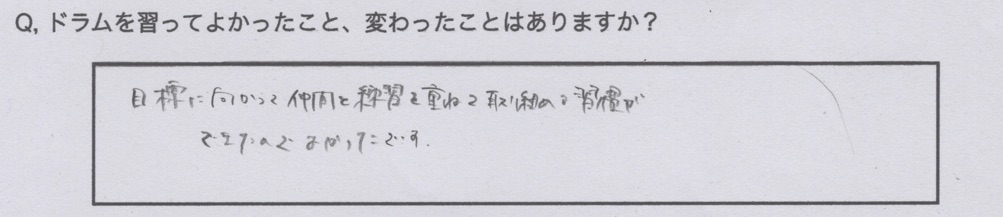 Q, ドラムを習ってよかったこと、変わったことはありますか？
目標に向かって仲間と練習を重ねて取り組める習慣が
できたのでよかったです.